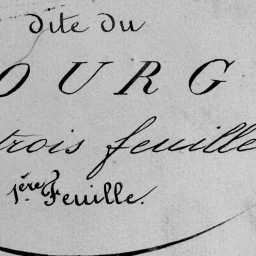 dite du
OURG
trois feuille
1ère Feuille.